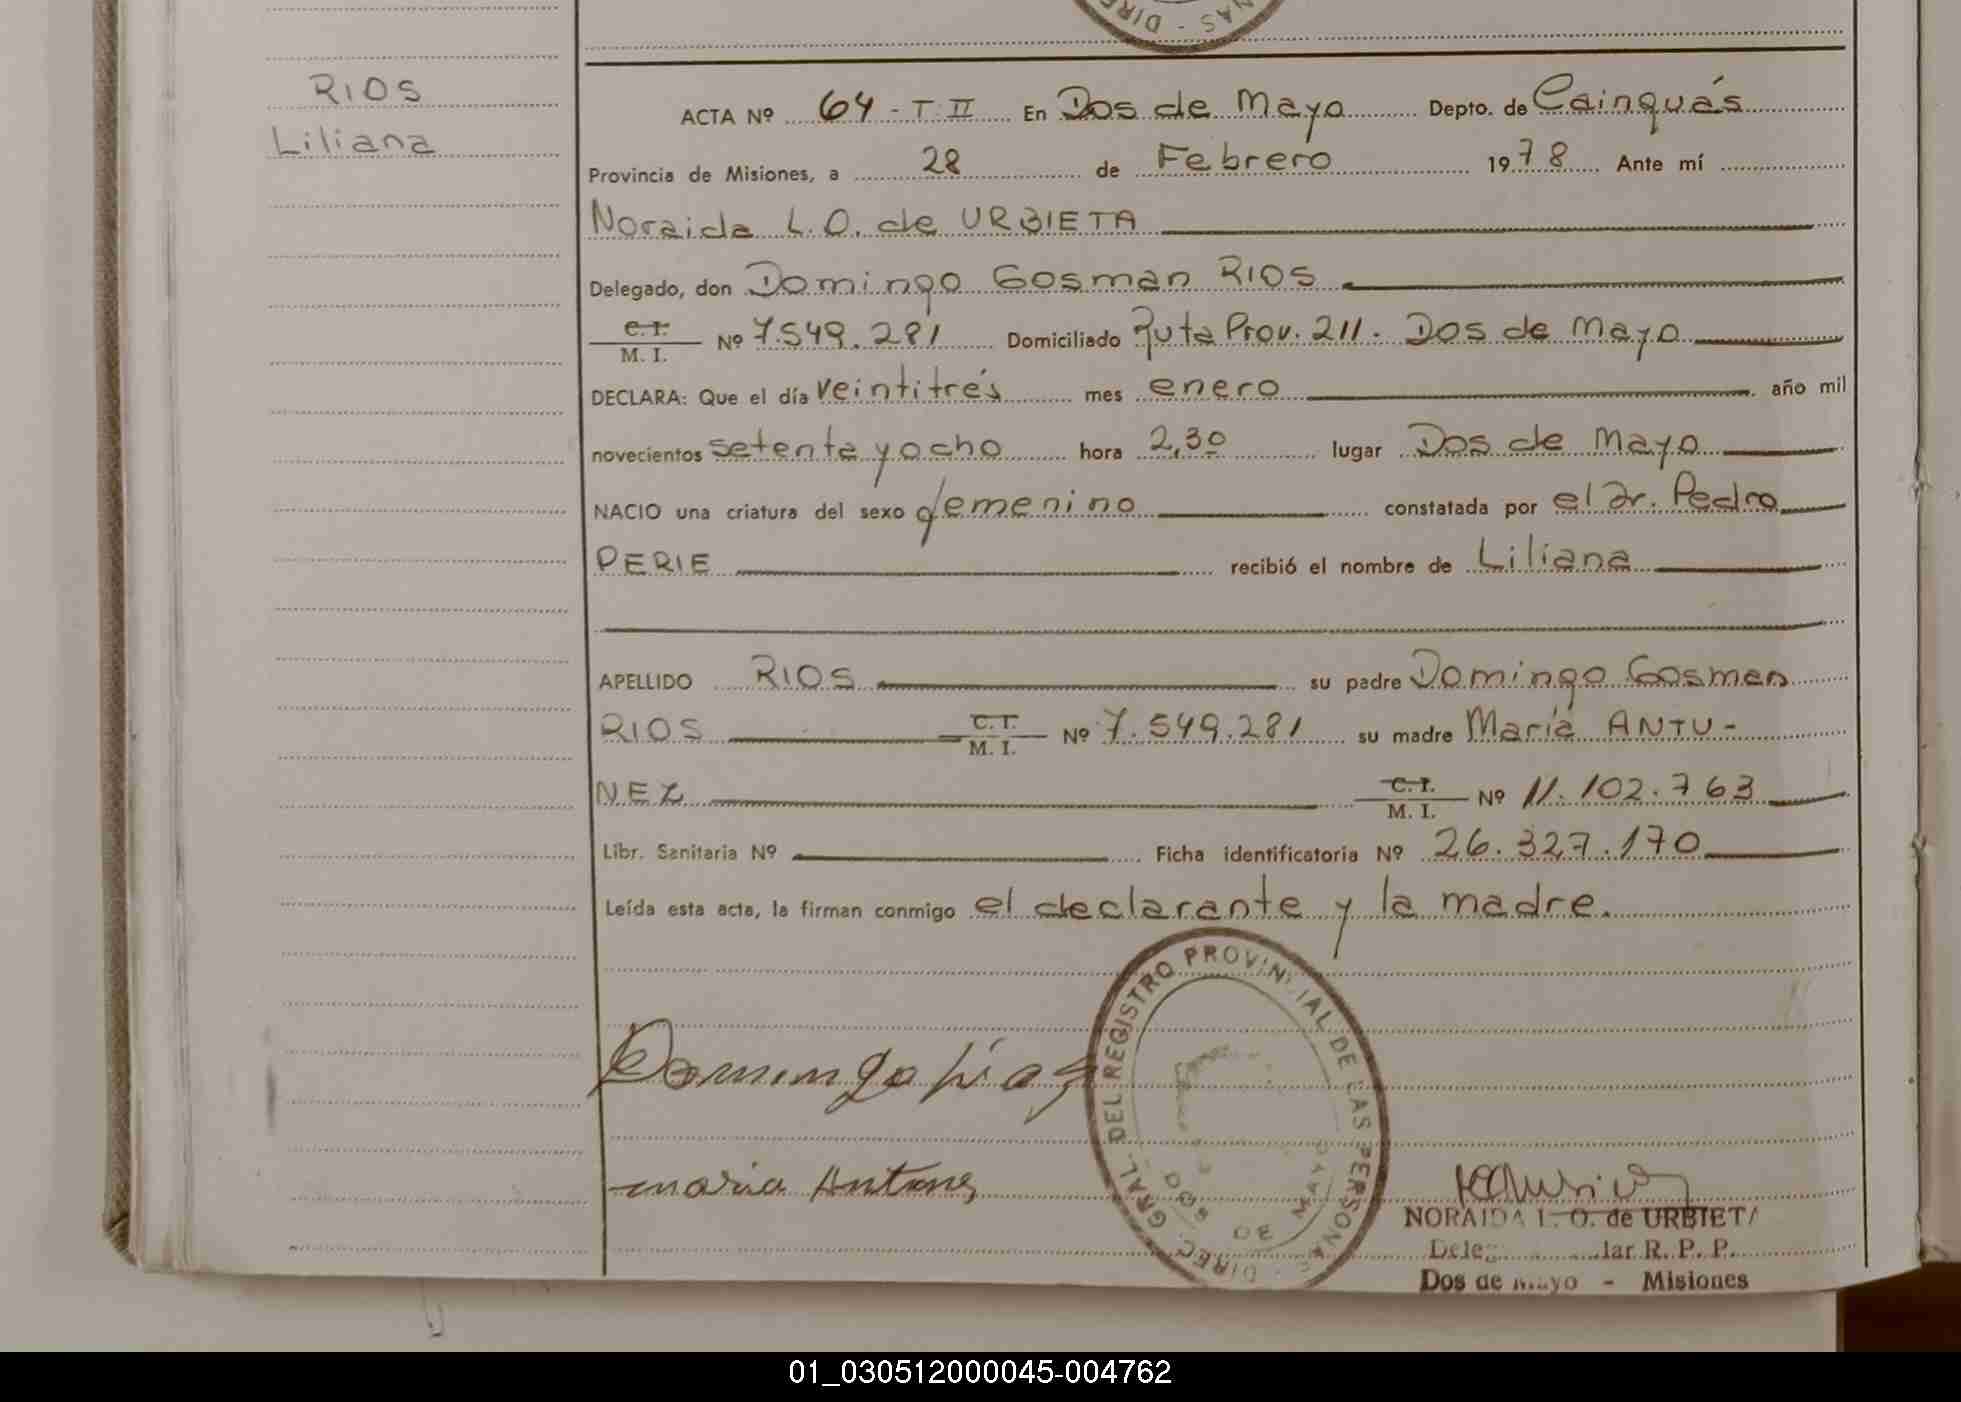 DIREC. NAS
RIOS
Liliana
ACTA Nº 64 - T. II En Dos de Mayo Depto. de Cainguás
Provincia de Misiones, a 28 de Febrero 1978 Ante mí
Noraida L.O. de URBIETA
Delegado, don Domingo Gosman RIOS
C.I. M. I. Nº 7.549.281 Domiciliado Ruta Prov. 211 - Dos de Mayo
DECLARA: Que el día veintitrés mes enero año mil
novecientos setenta y ocho hora 2,30 lugar Dos de Mayo
NACIO una criatura del sexo femenino constatada por el Dr. Pedro
PERIE recibió el nombre de Liliana
APELLIDO RIOS su padre Domingo Gosman
RIOS C.I. M. I. Nº 7.549.281 su madre María ANTU-
NEZ C.I. M. I. Nº 11.102.763
Libr. Sanitaria Nº Ficha identificatoria Nº 26.327.170
Leída esta acta, la firman conmigo el declarante y la madre.
DIREC. GRAL. DEL REGISTRO PROVINCIAL DE LAS PERSONAS
DOS DE MAYO
Domingo Rios
maria Antunes
NORAIDA L. O. de URBIETA
R. P. P.
Dos de Mayo - Misiones
01_030512000045-004762